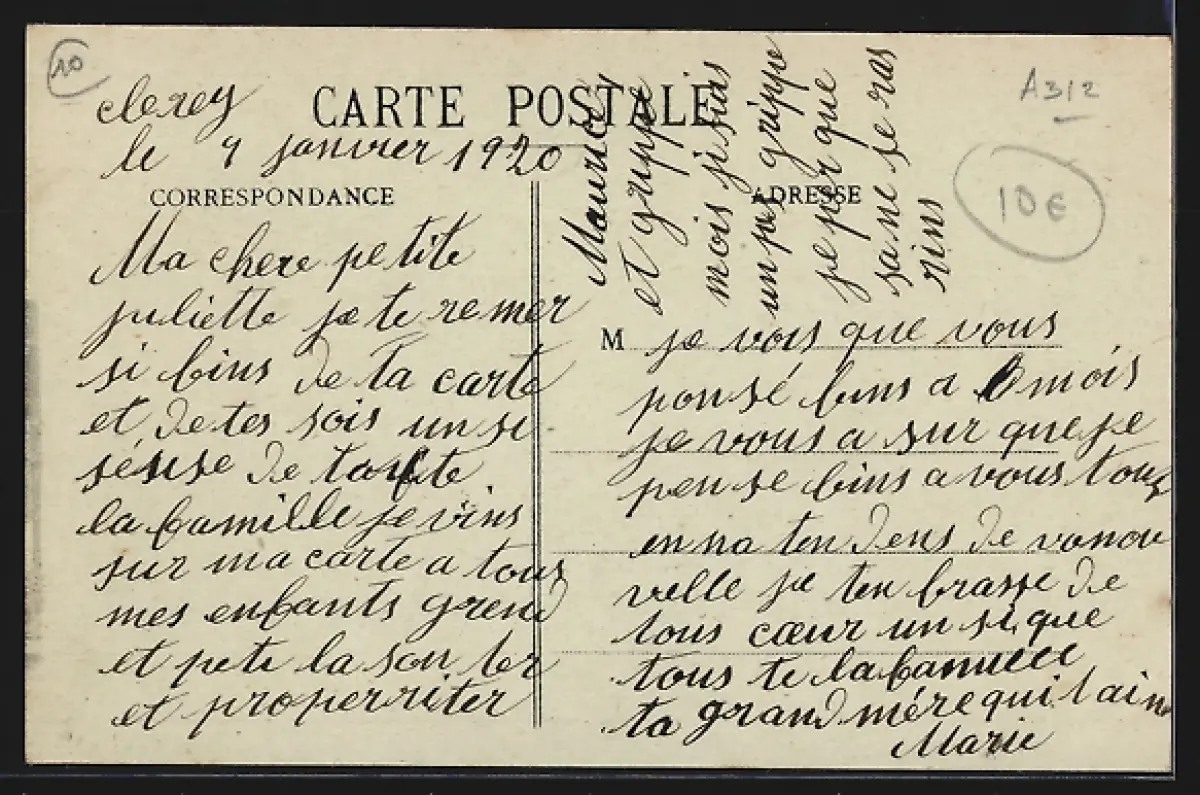 10
clerey
CARTE POSTALE
A312
le 9 janvier 1920
CORRESPONDANCE
ADRESSE
10€
Ma chere petite
juliette je te remer
si bins de ta carte
et de tes sois un si
de toute
la famille je vins
sur ma carte a tous
mes enfants grend
et pete la son ter
et properriter
M je vois que vous
pensé bins a mois
je vous a sur que je
pen se bins a vous tous
en na ten dens de vo nou
velle je ten brasse de
tous cœur un si que
tous te la famille
ta grand mére qui t aime
Marie
Maurice
et grippe
mois ji suis
un peu grippe
je per que
sa ne se ras
rins